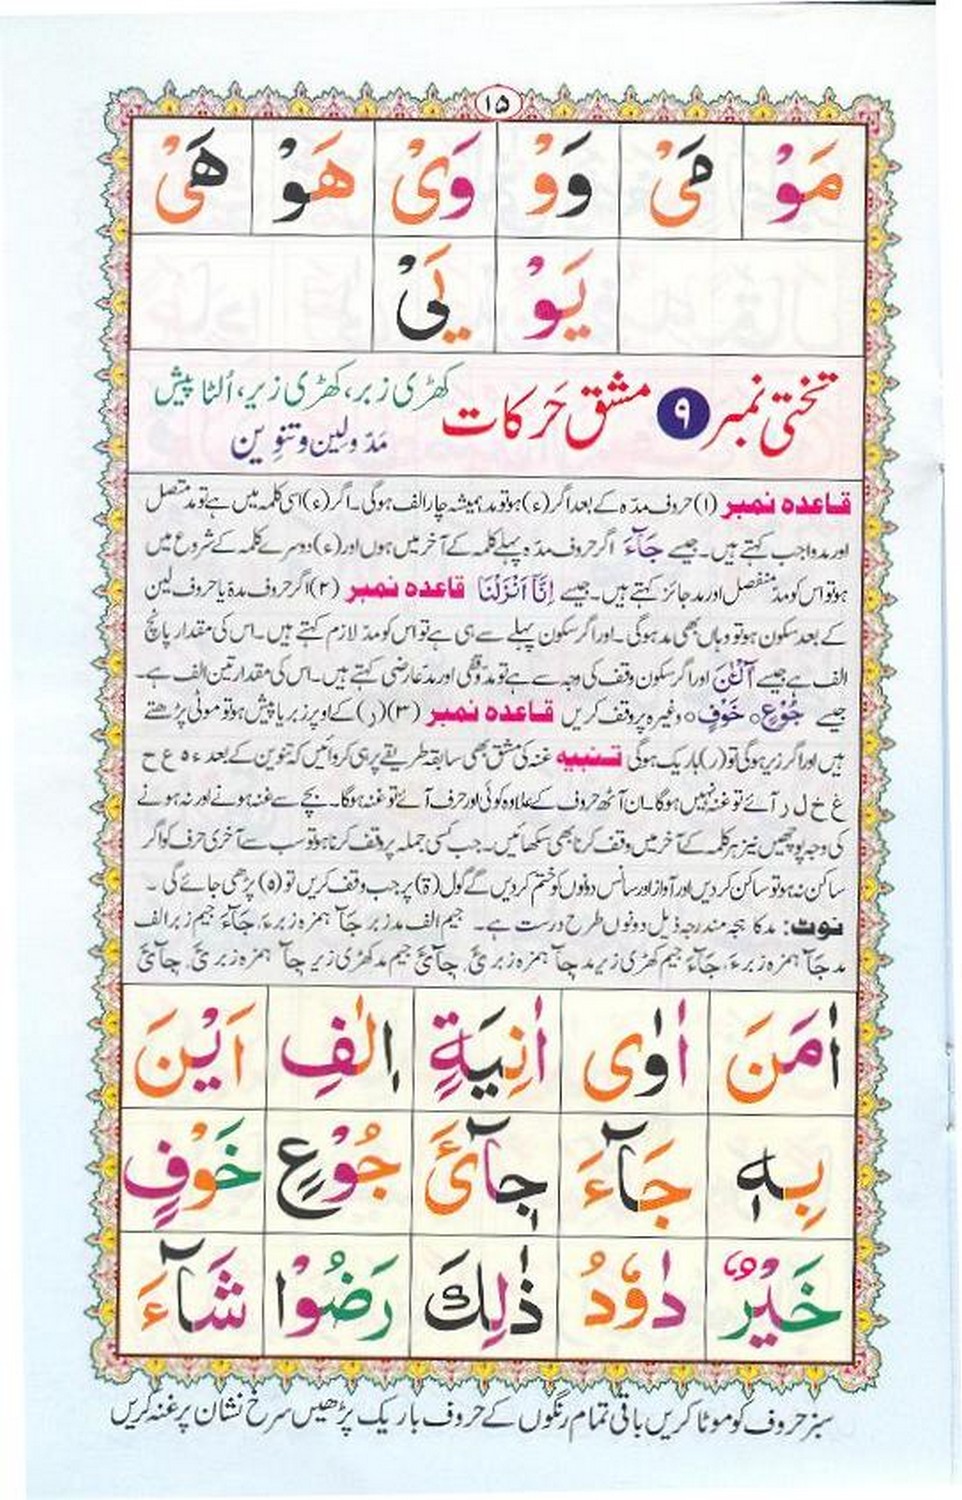 ۱۵
مَوْ مَیْ وَوْ وَیْ هَوْ هَیْ
یَوْ یَیْ
تختی نمبر ۹ مشق حَرکات کھڑی زبر، کھڑی زیر، اُلٹا پیش
مَدّ و لین و تنوِین
قاعدہ نمبر (۱) حروف مدّہ کے بعد اگر (ء) ہو تو مد ہمیشہ چار الف ہوگی۔ اگر (ء) اسی کلمہ میں ہے تو مد متصل
اور مد واجب کہتے ہیں۔ جیسے جَآءَ اگر حروف مدّہ پہلے کلمہ کے آخر میں ہوں اور (ء) دوسرے کلمہ کے شروع میں
ہو تو اس کو مدّ منفصل اور مد جائز کہتے ہیں۔ جیسے اِنَّآ اَنْزَلْنَا قاعدہ نمبر (۲) اگر حروف مدہ یا حروف لین
کے بعد سکون ہو تو وہاں بھی مد ہوگی۔ اور اگر سکون پہلے سے ہی ہے تو اس کو مدّ لازم کہتے ہیں۔ اس کی مقدار پانچ
الف ہے جیسے آٰلْـٰٔنَ اور اگر سکون وقف کی وجہ سے ہے تو مدّ وقفی اور مدّ عارضی کہتے ہیں۔ اس کی مقدار تین الف ہے۔
جیسے جُوْعٍ ہ خَوْفٍ ہ وغیرہ پر وقف کریں قاعدہ نمبر (۳) (ر) کے اوپر زبر یا پیش ہو تو موٹی پڑھتے
ہیں اور اگر زیر ہوگی تو (ر) باریک ہوگی تنبیہ غنہ کی مشق بھی سابقہ طریقے پر ہی کروائیں کہ تنوین کے بعد ء ہ ع ح
غ خ ل ر آئے تو غنہ نہیں ہوگا۔ ان آٹھ حروف کے علاوہ کوئی اور حرف آئے تو غنہ ہوگا۔ بچے سے غنہ ہونے اور نہ ہونے
کی وجہ پوچھیں نیز ہر کلمہ کے آخر میں وقف کرنا بھی سکھائیں۔ جب کسی جملہ پر وقف کرنا ہو تو سب سے آخری حرف کو اگر
ساکن نہ ہو تو ساکن کردیں اور آواز اور سانس دونوں کو ختم کردیں گے گول (ۃ) پر جب وقف کریں تو (ہ) پڑھی جائے گی۔
نوٹ: مد کا ہجہ مندرجہ ذیل دونوں طرح درست ہے۔ جیم الف مد زبر جَآ ہمزہ زبر ءَ، جَآءَ جیم زبر الف
مد جَآ ہمزہ زبر ءَ، جَآءَ جیم کھڑی زیر مد جِآ ہمزہ زبر ئَ، جِآئَ جیم مد کھڑی زیر جِآ ہمزہ زبر ئَ، جِآئَ
اٰمَنَ اٰوٰی اٰنِیَةٍ اِلٰفِ اَیْنَ
بِهٖ جَآءَ جِآیْئَ جُوْعٍ خَوْفٍ
خَیْرٌ دَاوٗدُ ذٰلِكَ رَضُوْا شَآءَ
سبز حروف کو موٹا کریں باقی تمام رنگوں کے حروف باریک پڑھیں سرخ نشان پر غنہ کریں